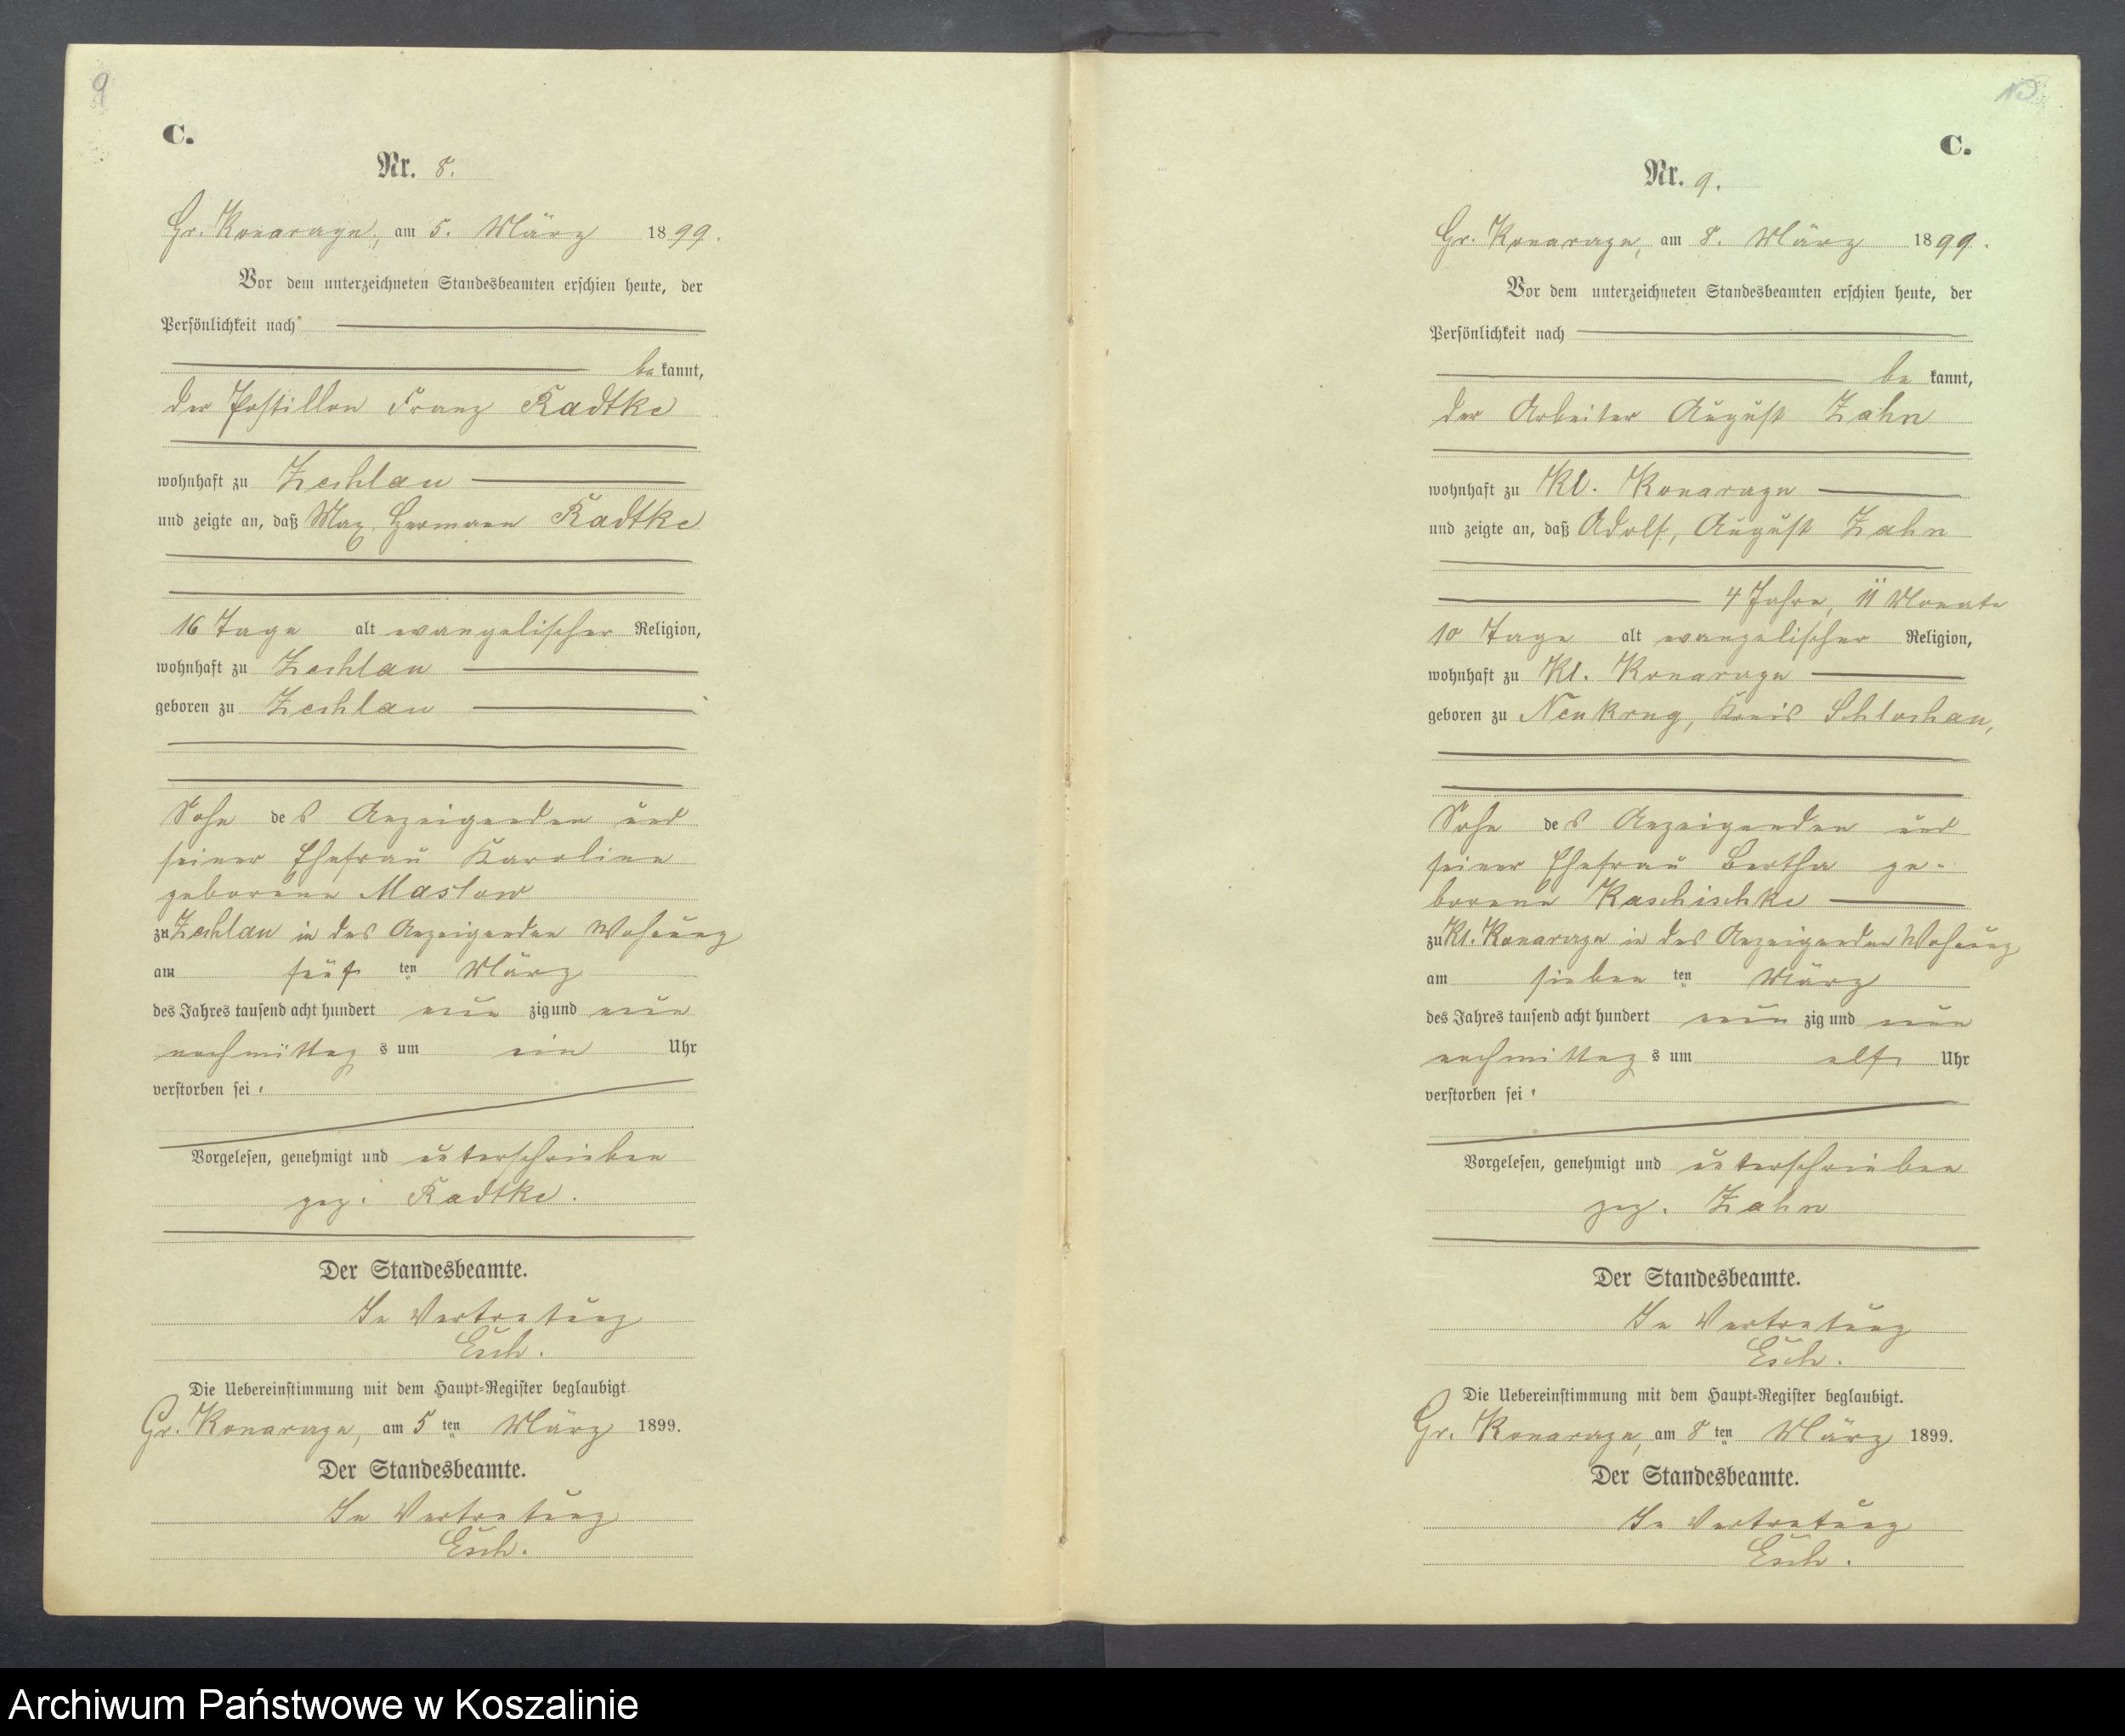 9
C.
Nr. 8.
Gr. Konarzyn, am 5. März 1899.
Vor dem unterzeichneten Standesbeamten erschien heute, der
Persönlichkeit nach
bekannt,
der Postillon Franz Radtke
wohnhaft zu Zechlau
und zeigte an, daß Max, Hermann Radtke
16 Tage alt evangelischer Religion,
wohnhaft zu Zechlau
geboren zu Zechlau
Sohn des Anzeigenden und
seiner Ehefrau Karoline
geborene Maslow
zu Zechlau in des Anzeigenden Wohnung
am fünf ten März
des Jahres tausend acht hundert neun zig und neun
nachmittag s um ein Uhr
verstorben sei.
Vorgelesen, genehmigt und unterschrieben
gez. Radtke.
Der Standesbeamte.
In Vertretung
Esch.
Die Uebereinstimmung mit dem Haupt-Register beglaubigt
Gr. Konarzyn, am 5 ten März 1899.
Der Standesbeamte.
In Vertretung
Esch.
10
C.
Nr. 9.
Gr. Konarzyn, am 8. März 1899.
Vor dem unterzeichneten Standesbeamten erschien heute, der
Persönlichkeit nach
be kannt,
der Arbeiter August Zahn
wohnhaft zu Kl. Konarzyn
und zeigte an, daß Adolf, August Zahn
4 Jahre, 11 Monate
10 Tage alt evangelischer Religion,
wohnhaft zu Kl. Konarzyn
geboren zu Neukrug, Kreis Schlochau,
Sohn des Anzeigenden und
seiner Ehefrau Bertha ge-
borene Kaschischke
zu Kl. Konarzyn in des Anzeigenden Wohnung
am sieben ten März
des Jahres tausend acht hundert neun zig und neun
nachmittag s um elf Uhr
verstorben sei.
Vorgelesen, genehmigt und unterschrieben
gez. Zahn
Der Standesbeamte.
In Vertretung
Esch.
Die Uebereinstimmung mit dem Haupt-Register beglaubigt.
Gr. Konarzyn, am 8 ten März 1899.
Der Standesbeamte.
In Vertretung
Esch.
Archiwum Państwowe w Koszalinie